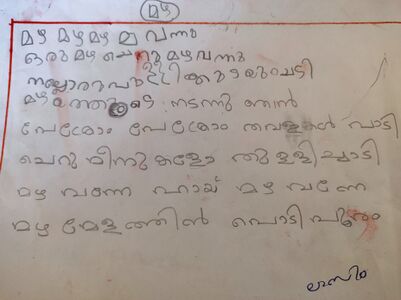 മഴ
മഴ മഴ മഴ മഴ വന്നു
ഒരു മഴ ചെറു മഴ വന്നു
നല്ലൊരു പുള്ളി കുടയും ചൂടി
മഴയത്തൂടെ നടന്നു ഞാൻ
പേക്രോം പേക്രോം തവളകൾ പാടി
ചെറു മീനുകളോ തുള്ളിച്ചാടി
മഴ വന്നേ ഹായ് മഴ വന്നേ
മഴ മേളത്തിൻ പൊടി പൂരം